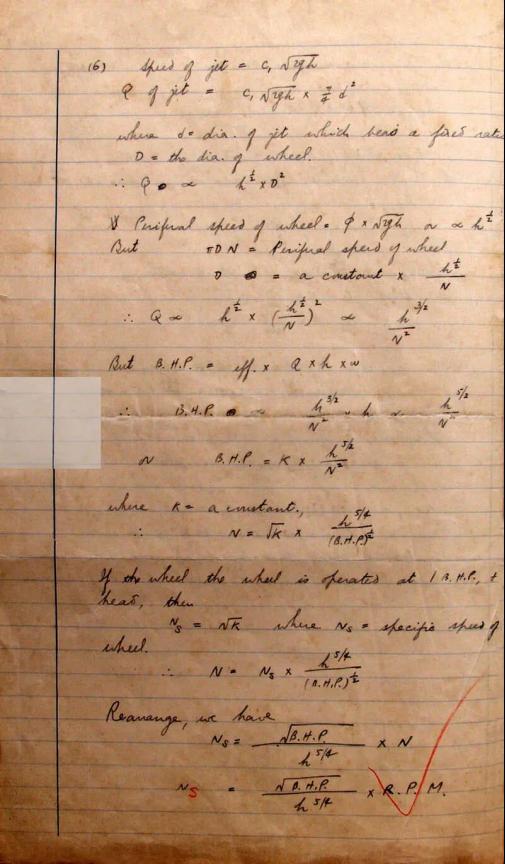 (6) Speed of jet = C₁ √2gh
Q of jet = C₁ √2gh × π/4 d²
where d = dia. of jet which bears a fixed ratio
D = the dia. of wheel.
∴ Q ∝ h^½ × D²
Perifural speed of wheel = φ × √2gh or ∝ h^½
But πDN = Perifural speed of wheel
D = a constant × h^½/N
∴ Q ∝ h^½ × (h^½/N)² ∝ h^3/2/N²
But B.H.P. = eff. × Q × h × w
∴ B.H.P. ∝ h^3/2/N² × h ∝ h^5/2/N²
or B.H.P. = K × h^5/2/N²
where K = a constant.,
∴ N = √K × h^5/4/(B.H.P.)^½
If the wheel the wheel is operated at 1 B.H.P.,
head, then
N_S = √K where N_S = specific speed of
wheel.
∴ N = N_S × h^5/4/(B.H.P.)^½
Rearrange, we have
N_S = √B.H.P./h^5/4 × N
N_S = √B.H.P./h^5/4 × R.P.M.